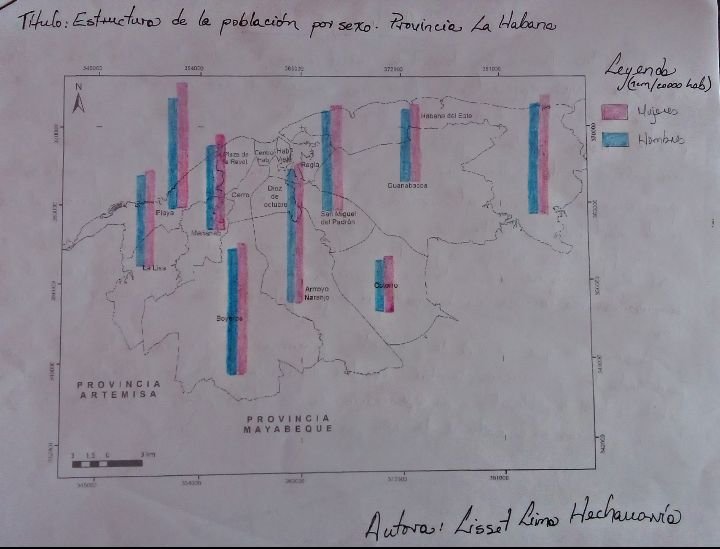 Título: Estructura de la población por sexo. Provincia La Habana
345000 354000 363000 372000 381000
N
Leyenda
(1cm/20000 hab)
Mujeres
Hombres
Habana del Este
Plaza de
la Revol.
Centro
Hab.
Hab.
Vieja
Regla
Guanabacoa
Cerro
Diez
de
octubre
Playa
San Miguel
del Padrón
Marianao
La Lisa
Cotorro
Arroyo
Naranjo
Boyeros
PROVINCIA
ARTEMISA
PROVINCIA
MAYABEQUE
3 1,5 0 3 km
345000 354000 363000 372000 381000
Autora: Lisset Lima Hechavarría